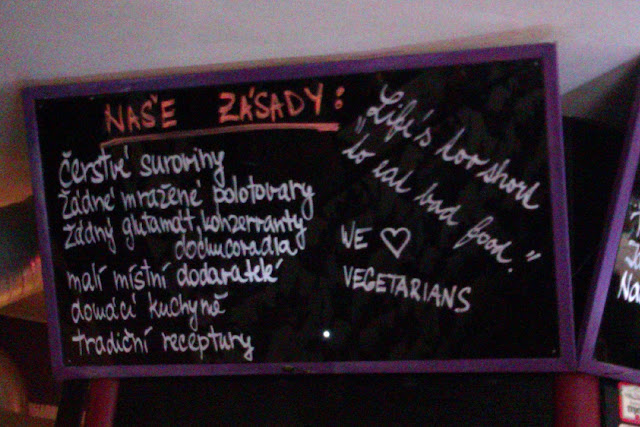 NAŠE ZÁSADY:
čerstvé suroviny
žádné mražené polotovary
žádný glutamát, konzervanty
dochucovadla
malí místní dodavatelé
domácí kuchyně
tradiční receptury
„Life's too short
to eat bad food."
WE ♡
VEGETARIANS
Na